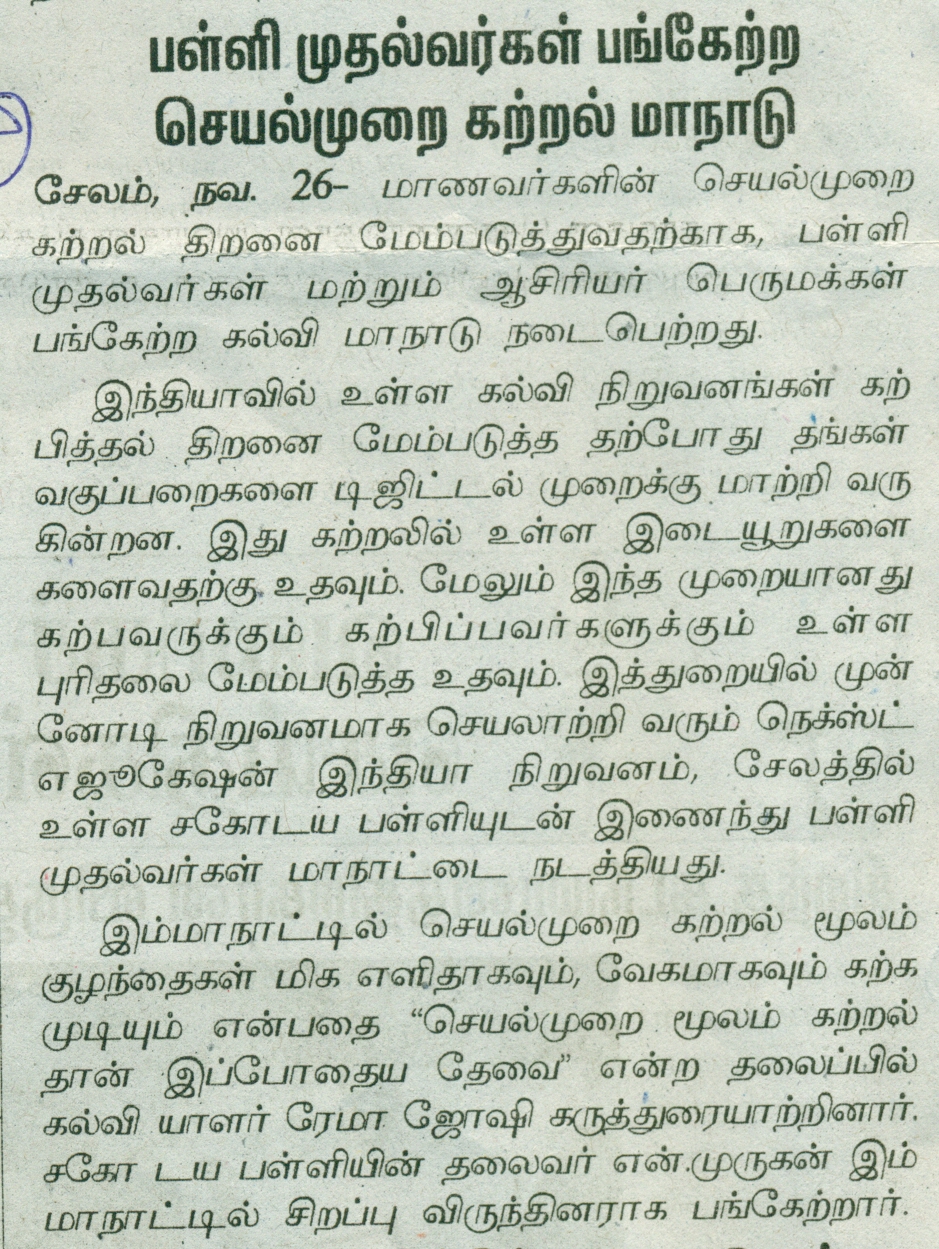 பள்ளி முதல்வர்கள் பங்கேற்ற
செயல்முறை கற்றல் மாநாடு
சேலம், நவ. 26– மாணவர்களின் செயல்முறை
கற்றல் திறனை மேம்படுத்துவதற்காக, பள்ளி
முதல்வர்கள் மற்றும் ஆசிரியர் பெருமக்கள்
பங்கேற்ற கல்வி மாநாடு நடைபெற்றது.
இந்தியாவில் உள்ள கல்வி நிறுவனங்கள் கற்
பித்தல் திறனை மேம்படுத்த தற்போது தங்கள்
வகுப்பறைகளை டிஜிட்டல் முறைக்கு மாற்றி வரு
கின்றன. இது கற்றலில் உள்ள இடையூறுகளை
களைவதற்கு உதவும். மேலும் இந்த முறையானது
கற்பவருக்கும் கற்பிப்பவர்களுக்கும் உள்ள
புரிதலை மேம்படுத்த உதவும். இத்துறையில் முன்
னோடி நிறுவனமாக செயலாற்றி வரும் நெக்ஸ்ட்
எஜூகேஷன் இந்தியா நிறுவனம், சேலத்தில்
உள்ள சகோடய பள்ளியுடன் இணைந்து பள்ளி
முதல்வர்கள் மாநாட்டை நடத்தியது.
இம்மாநாட்டில் செயல்முறை கற்றல் மூலம்
குழந்தைகள் மிக எளிதாகவும், வேகமாகவும் கற்க
முடியும் என்பதை “செயல்முறை மூலம் கற்றல்
தான் இப்போதைய தேவை” என்ற தலைப்பில்
கல்வி யாளர் ரேமா ஜோஷி கருத்துரையாற்றினார்.
சகோ டய பள்ளியின் தலைவர் என்.முருகன் இம்
மாநாட்டில் சிறப்பு விருந்தினராக பங்கேற்றார்.